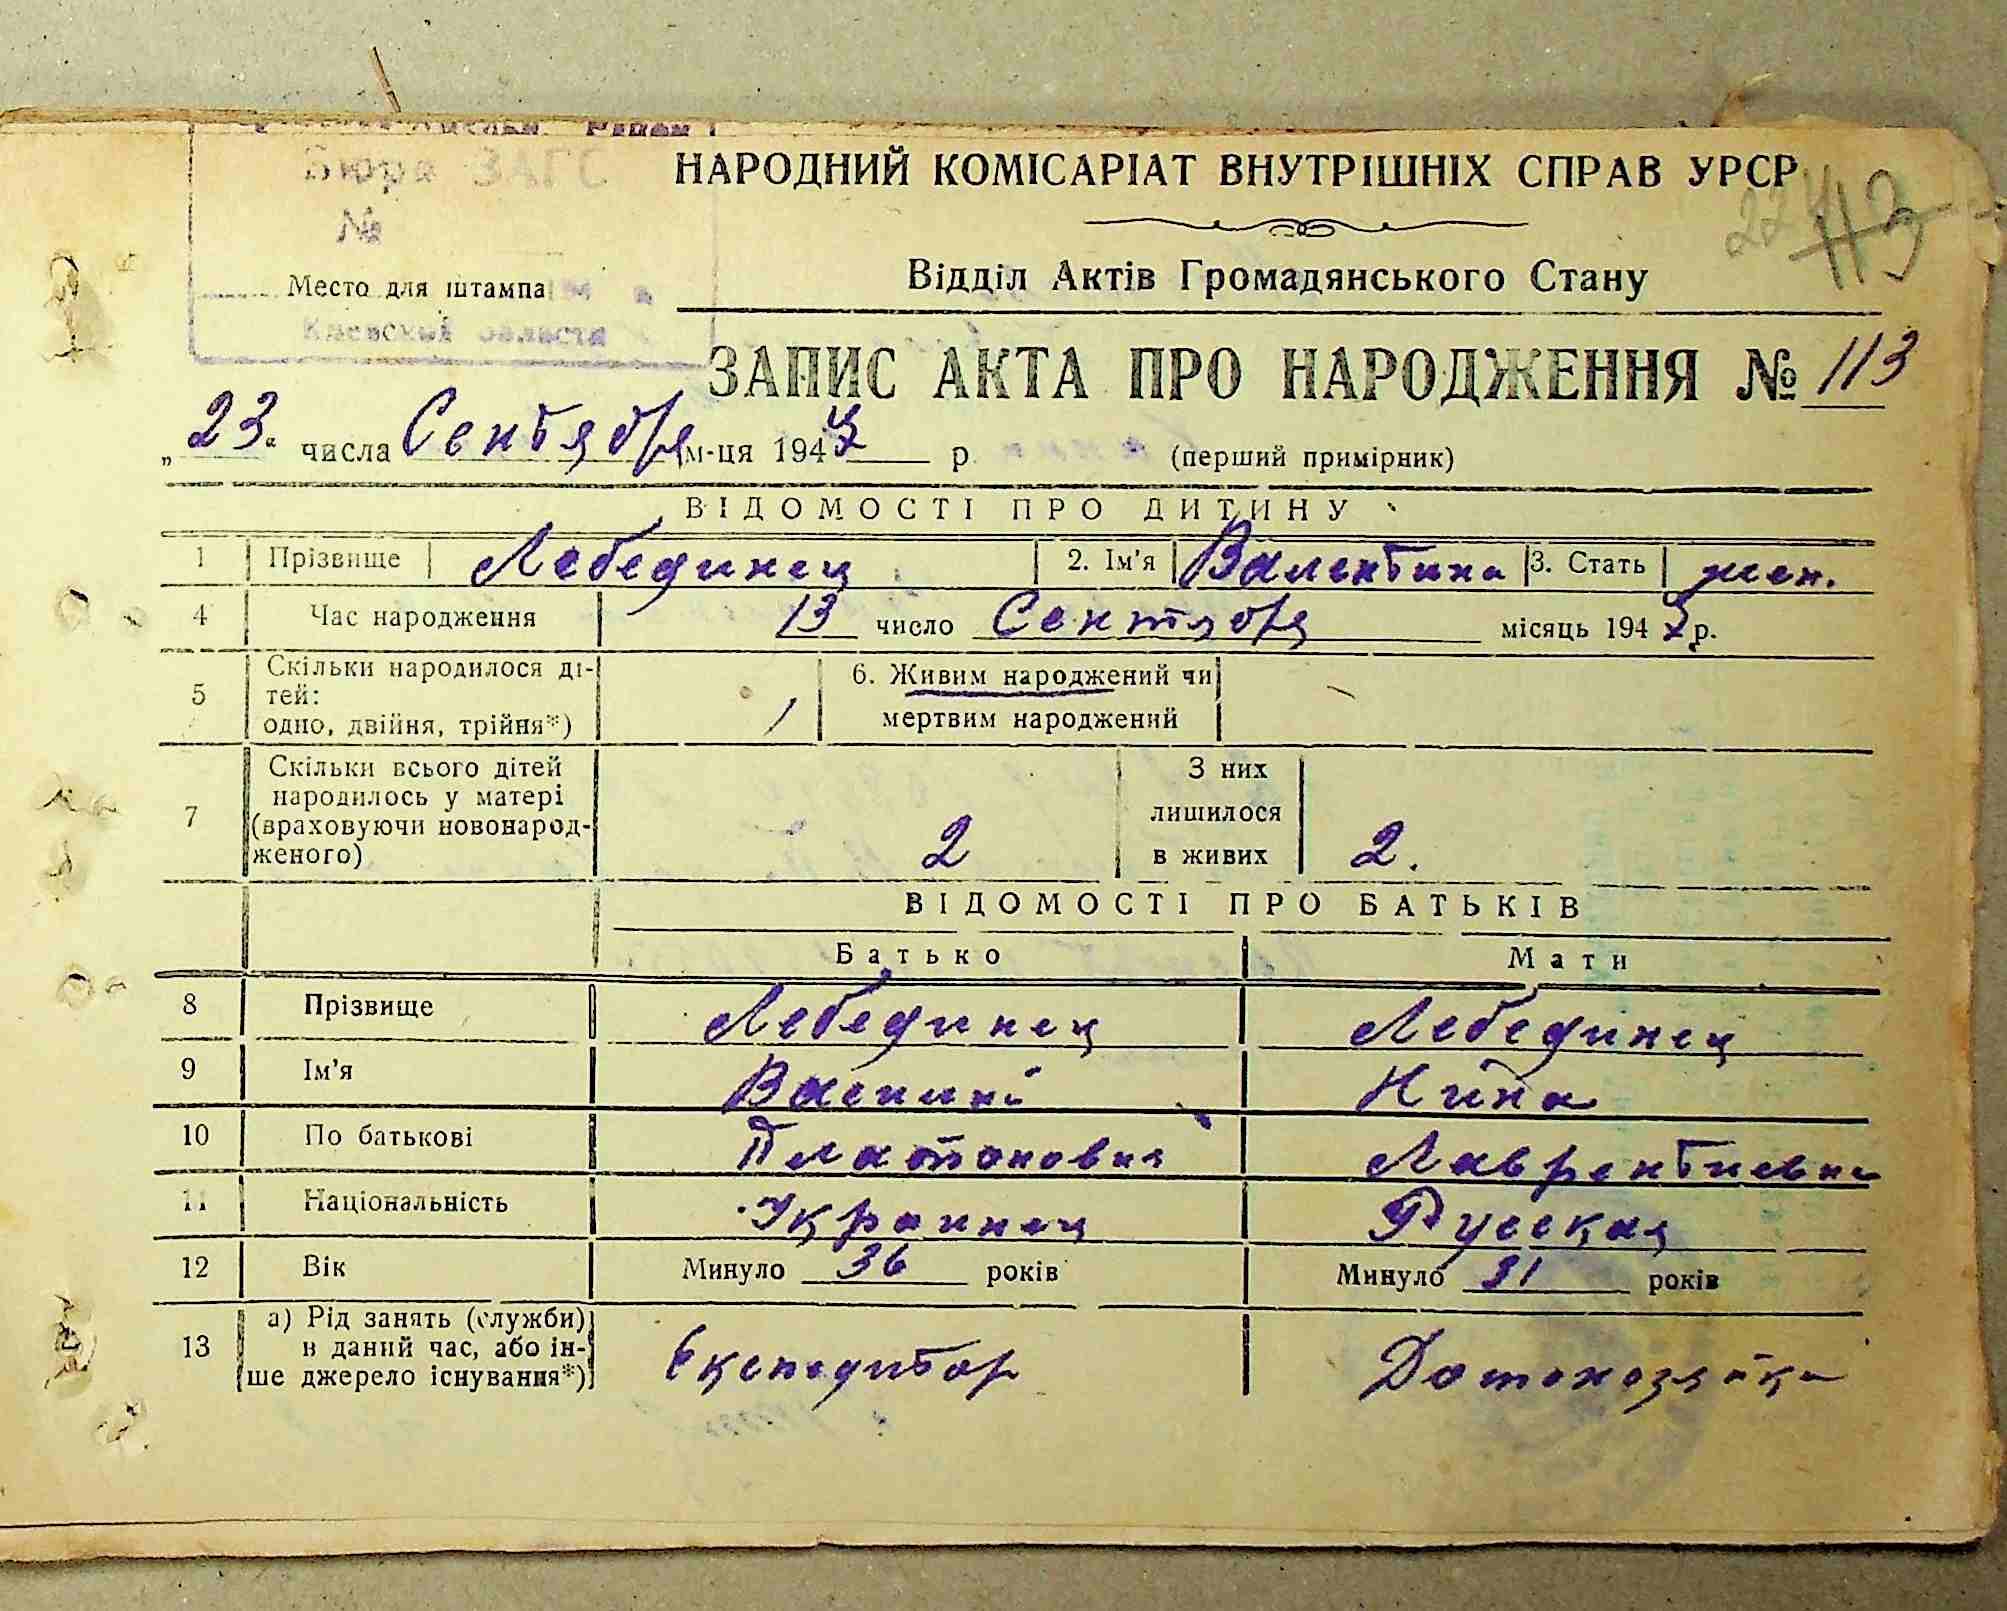 Бюро ЗАГС
НАРОДНИЙ КОМІСАРІАТ ВНУТРІШНІХ СПРАВ УРСР
№
113
Відділ Актів Громадянського Стану
Место для штампа
Киевской области
ЗАПИС АКТА ПРО НАРОДЖЕННЯ № 113
„23“ числа Сентября м-ця 194 р. (перший примірник)
ВІДОМОСТІ ПРО ДИТИНУ
1 Прізвище Лебединец 2. Ім'я Валентина 3. Стать жен.
4 Час народження 13 число Сентября місяць 194 р.
5 Скільки народилося ді-
тей:
одно, двійня, трійня*) 1
6. Живим народжений чи
мертвим народжений
7 Скільки всього дітей
народилось у матері
(враховуючи новонарод-
женого) 2
З них
лишилося
в живих 2.
ВІДОМОСТІ ПРО БАТЬКІВ
Батько Мати
8 Прізвище Лебединец Лебединец
9 Ім'я Василий Нина
10 По батькові Платонович Лаврентиевна
11 Національність Украинец Русская
12 Вік Минуло 36 років Минуло 31 років
13 а) Рід занять (служби)
в даний час, або ін-
ше джерело існування*) Експедитор Домохозяйка